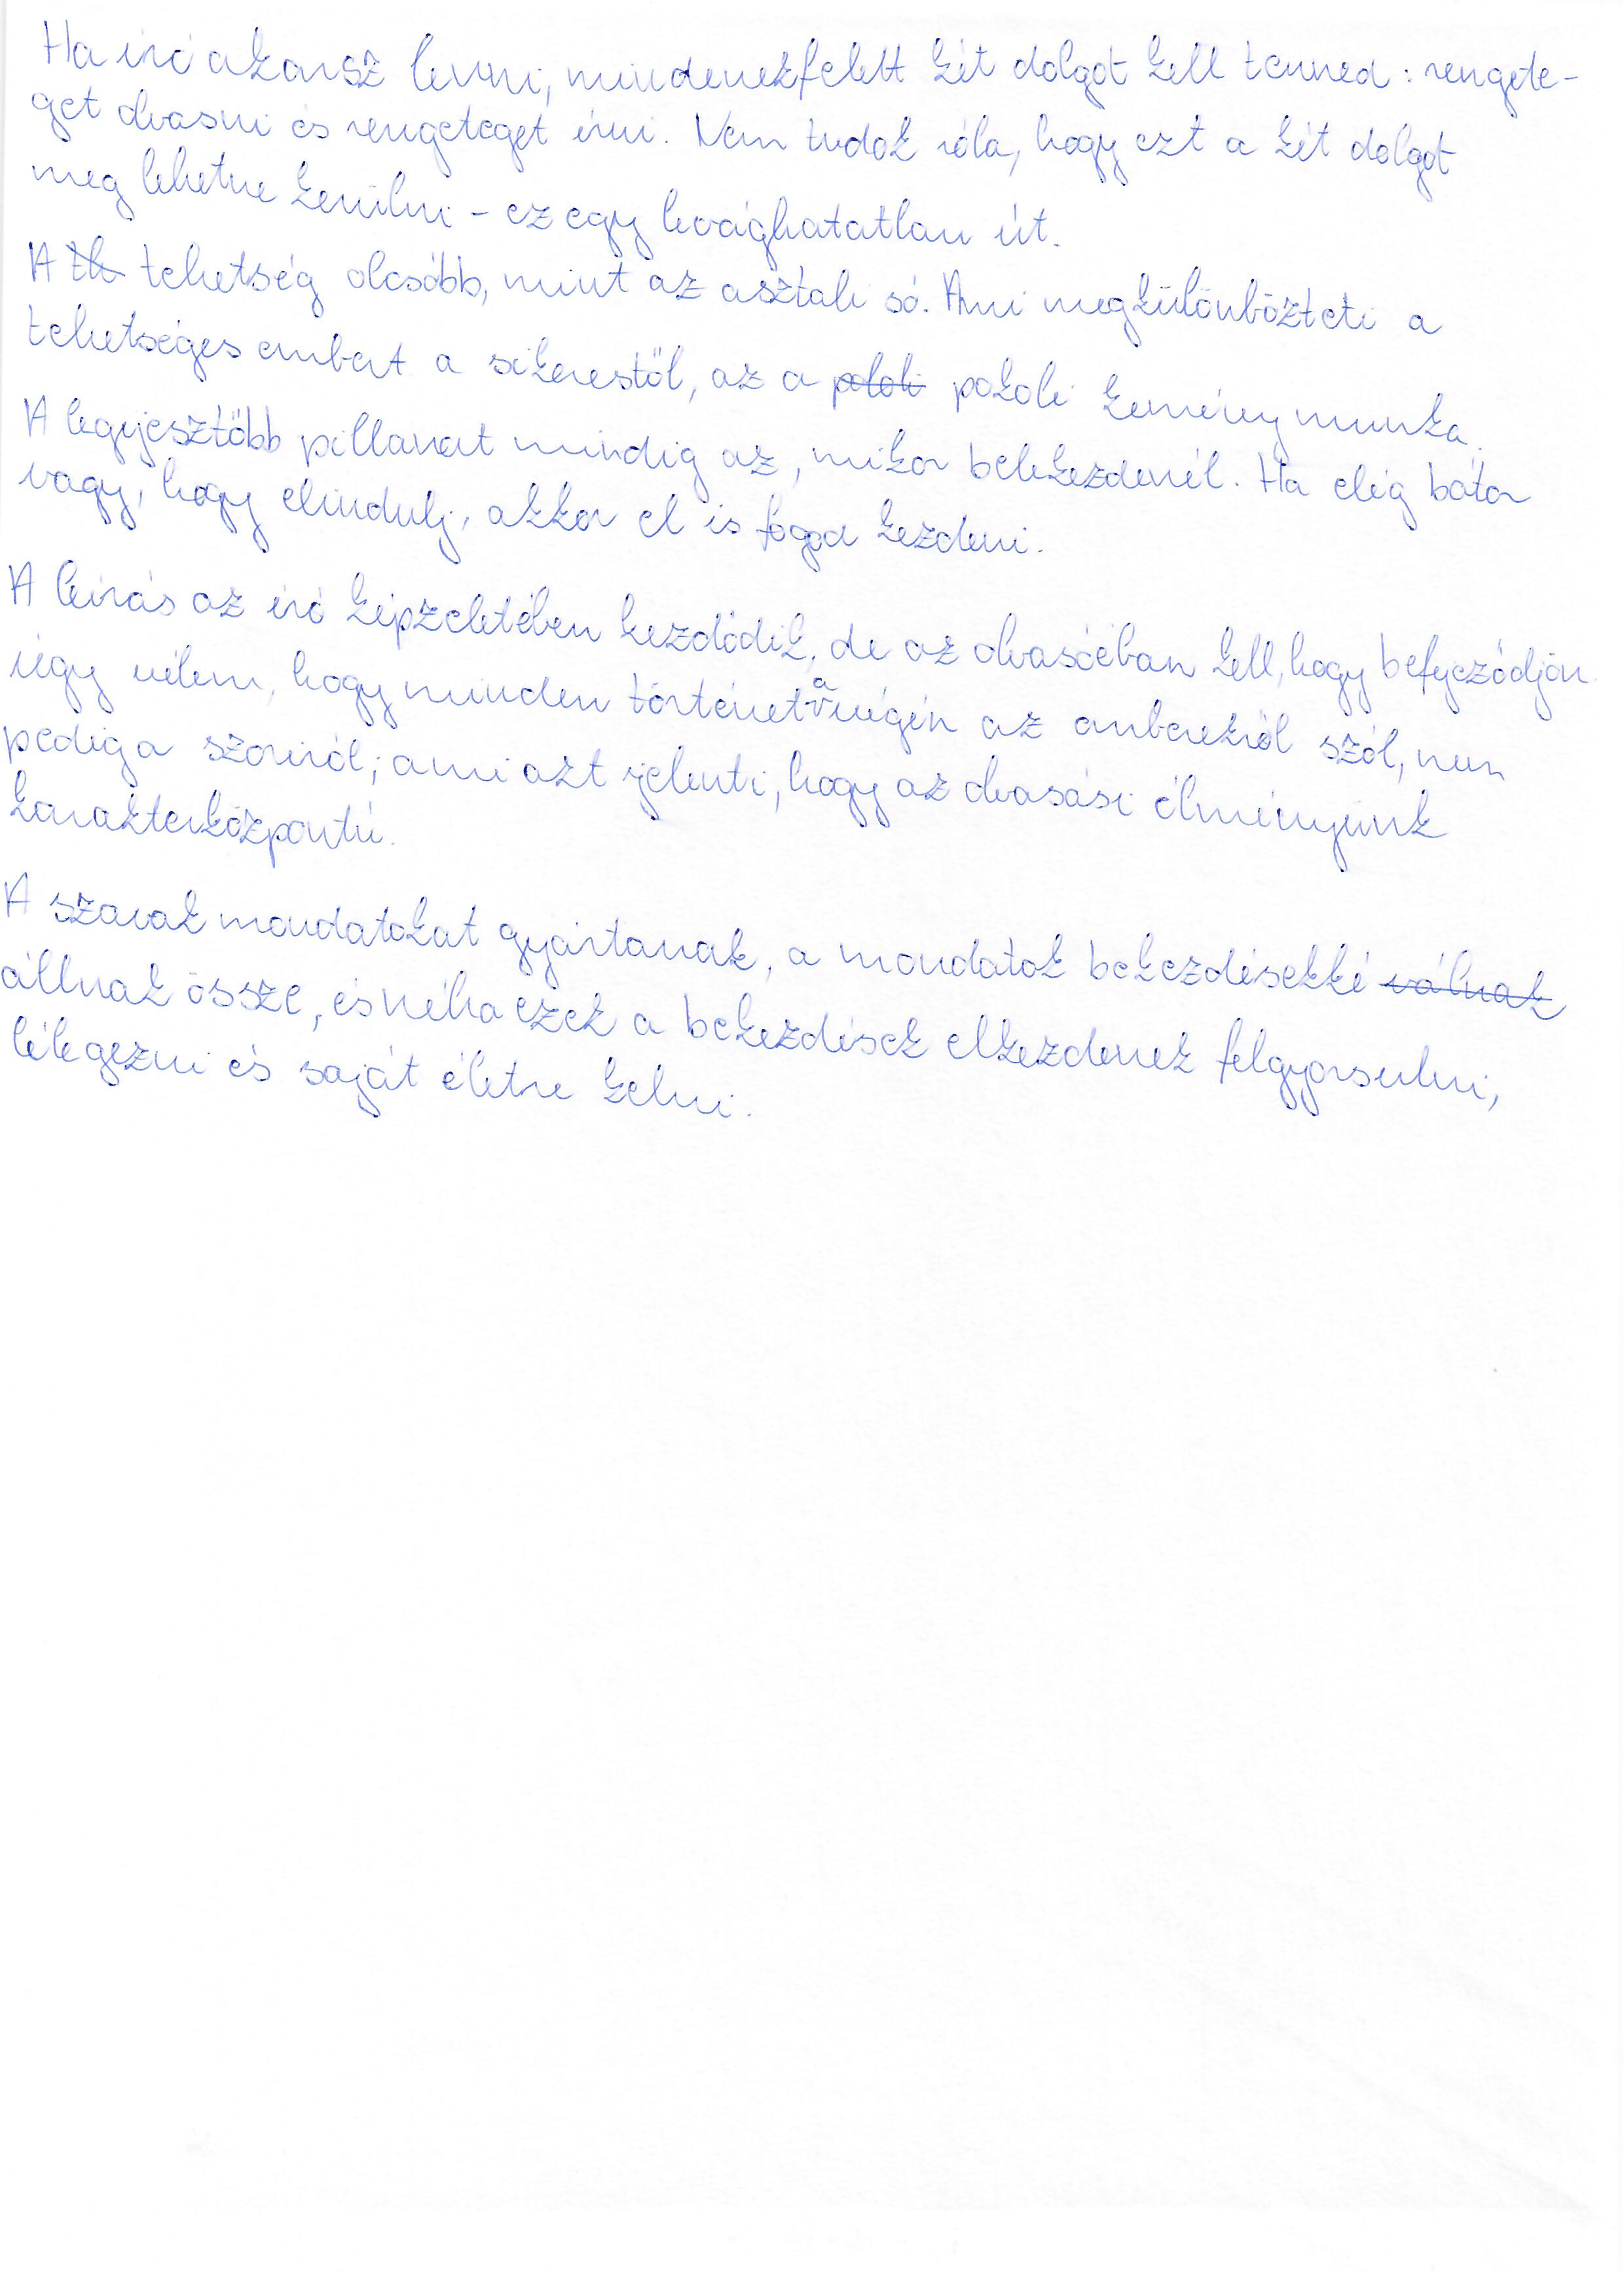 Ha író akarsz lenni, mindenekfelett két dolgot kell tenned: rengete-
get olvasni és rengeteget írni. Nem tudok róla, hogy ezt a két dolgot
meg lehetne kerülni - ez egy levághatatlan út.
A th tehetség olcsóbb, mint az asztali só. Ami megkülönbözteti a
tehetséges embert a sikerestől, az a pololi pokoli kemény munka.
A legijesztőbb pillanat mindig az, mikor belekezdenél. Ha elég bátor
vagy, hogy elindulj, akkor el is fogod kezdeni.
A leírás az író képzeletében kezdődik, de az olvasóéban kell, hogy befejeződjön.
úgy vélem, hogy minden történet a végén az emberekről szól, nem
pedig a sztoriról; ami azt jelenti, hogy az olvasási élményünk
karakterközpontú.
A szavak mondatokat gyártanak, a mondatok bekezdésekké válnak
állnak össze, és néha ezek a bekezdések elkezdenek felgyorsulni,
lélegezni és saját életre kelni.